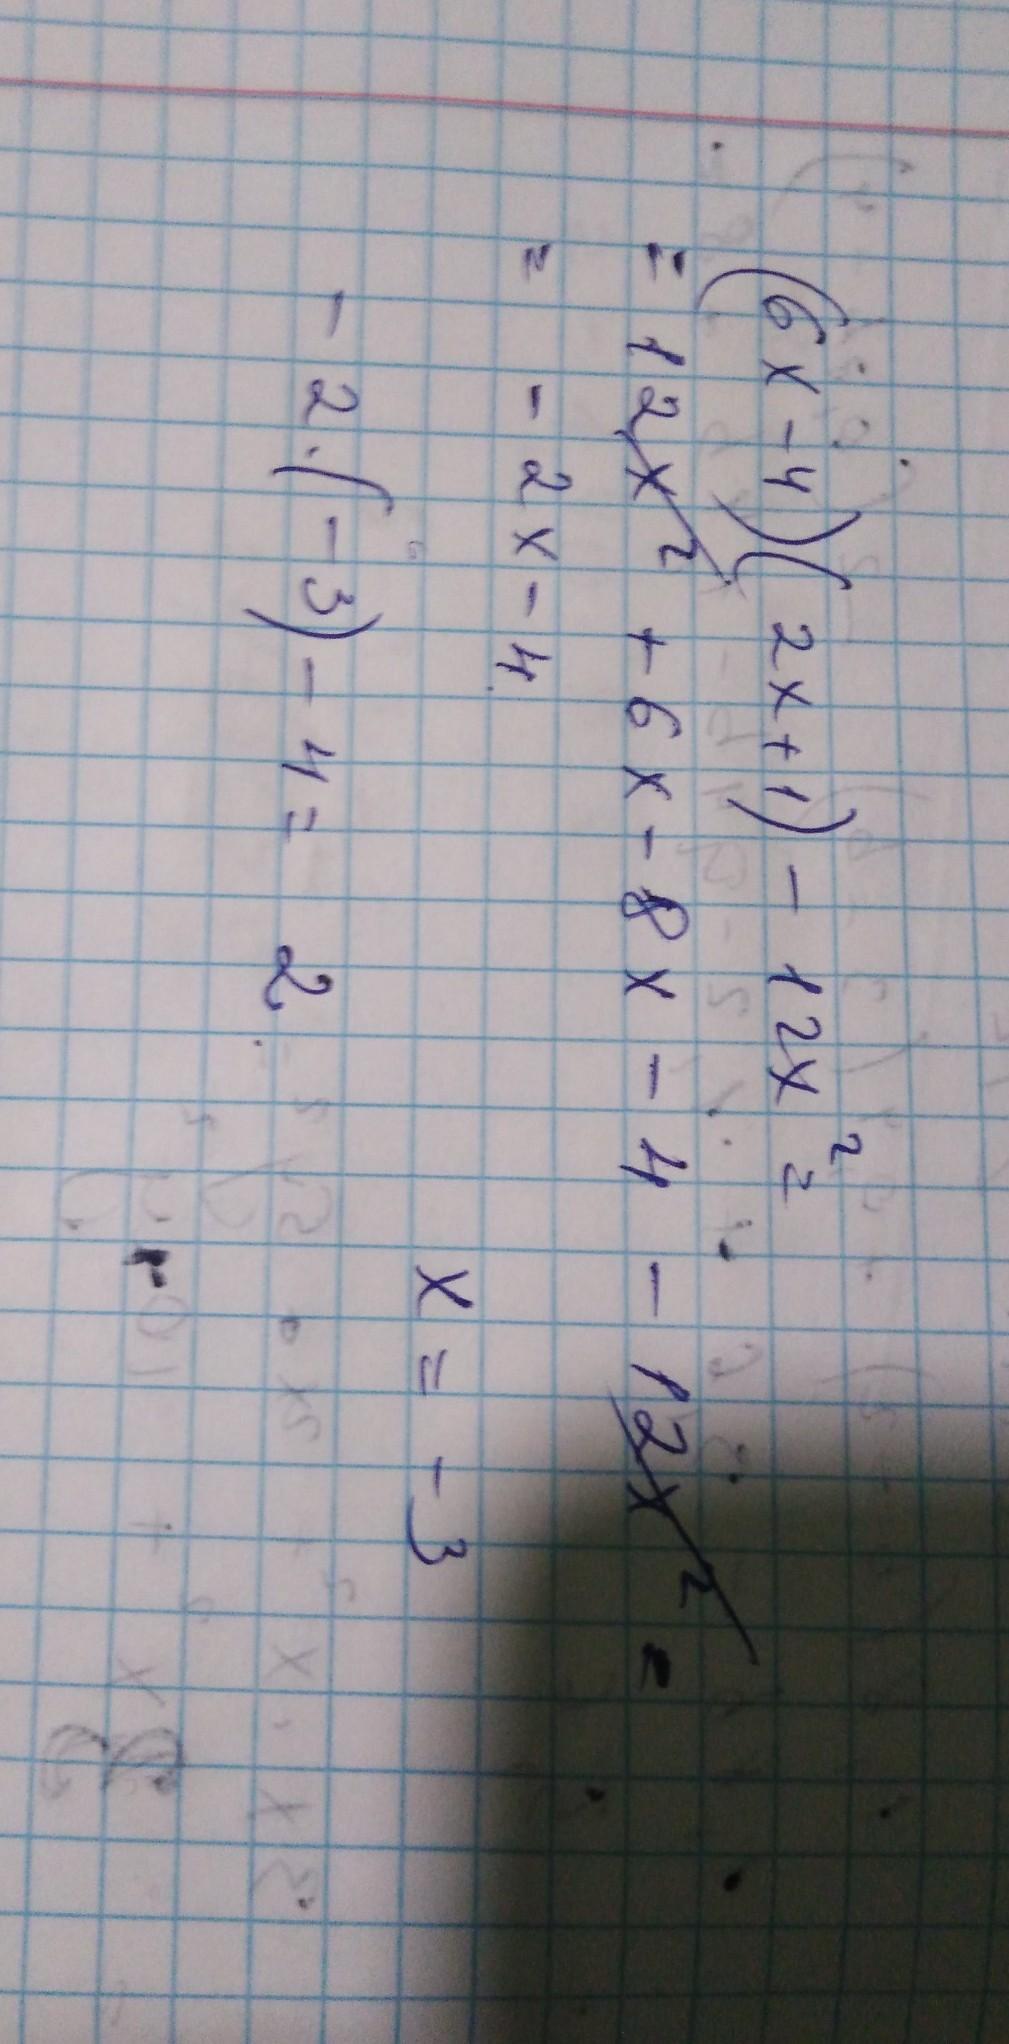 (6x-4)(2x+1) - 12x² =
= 12x² + 6x - 8x - 4 - 12x² =
= - 2x - 4
x = -3
- 2 · (-3) - 4 = 2